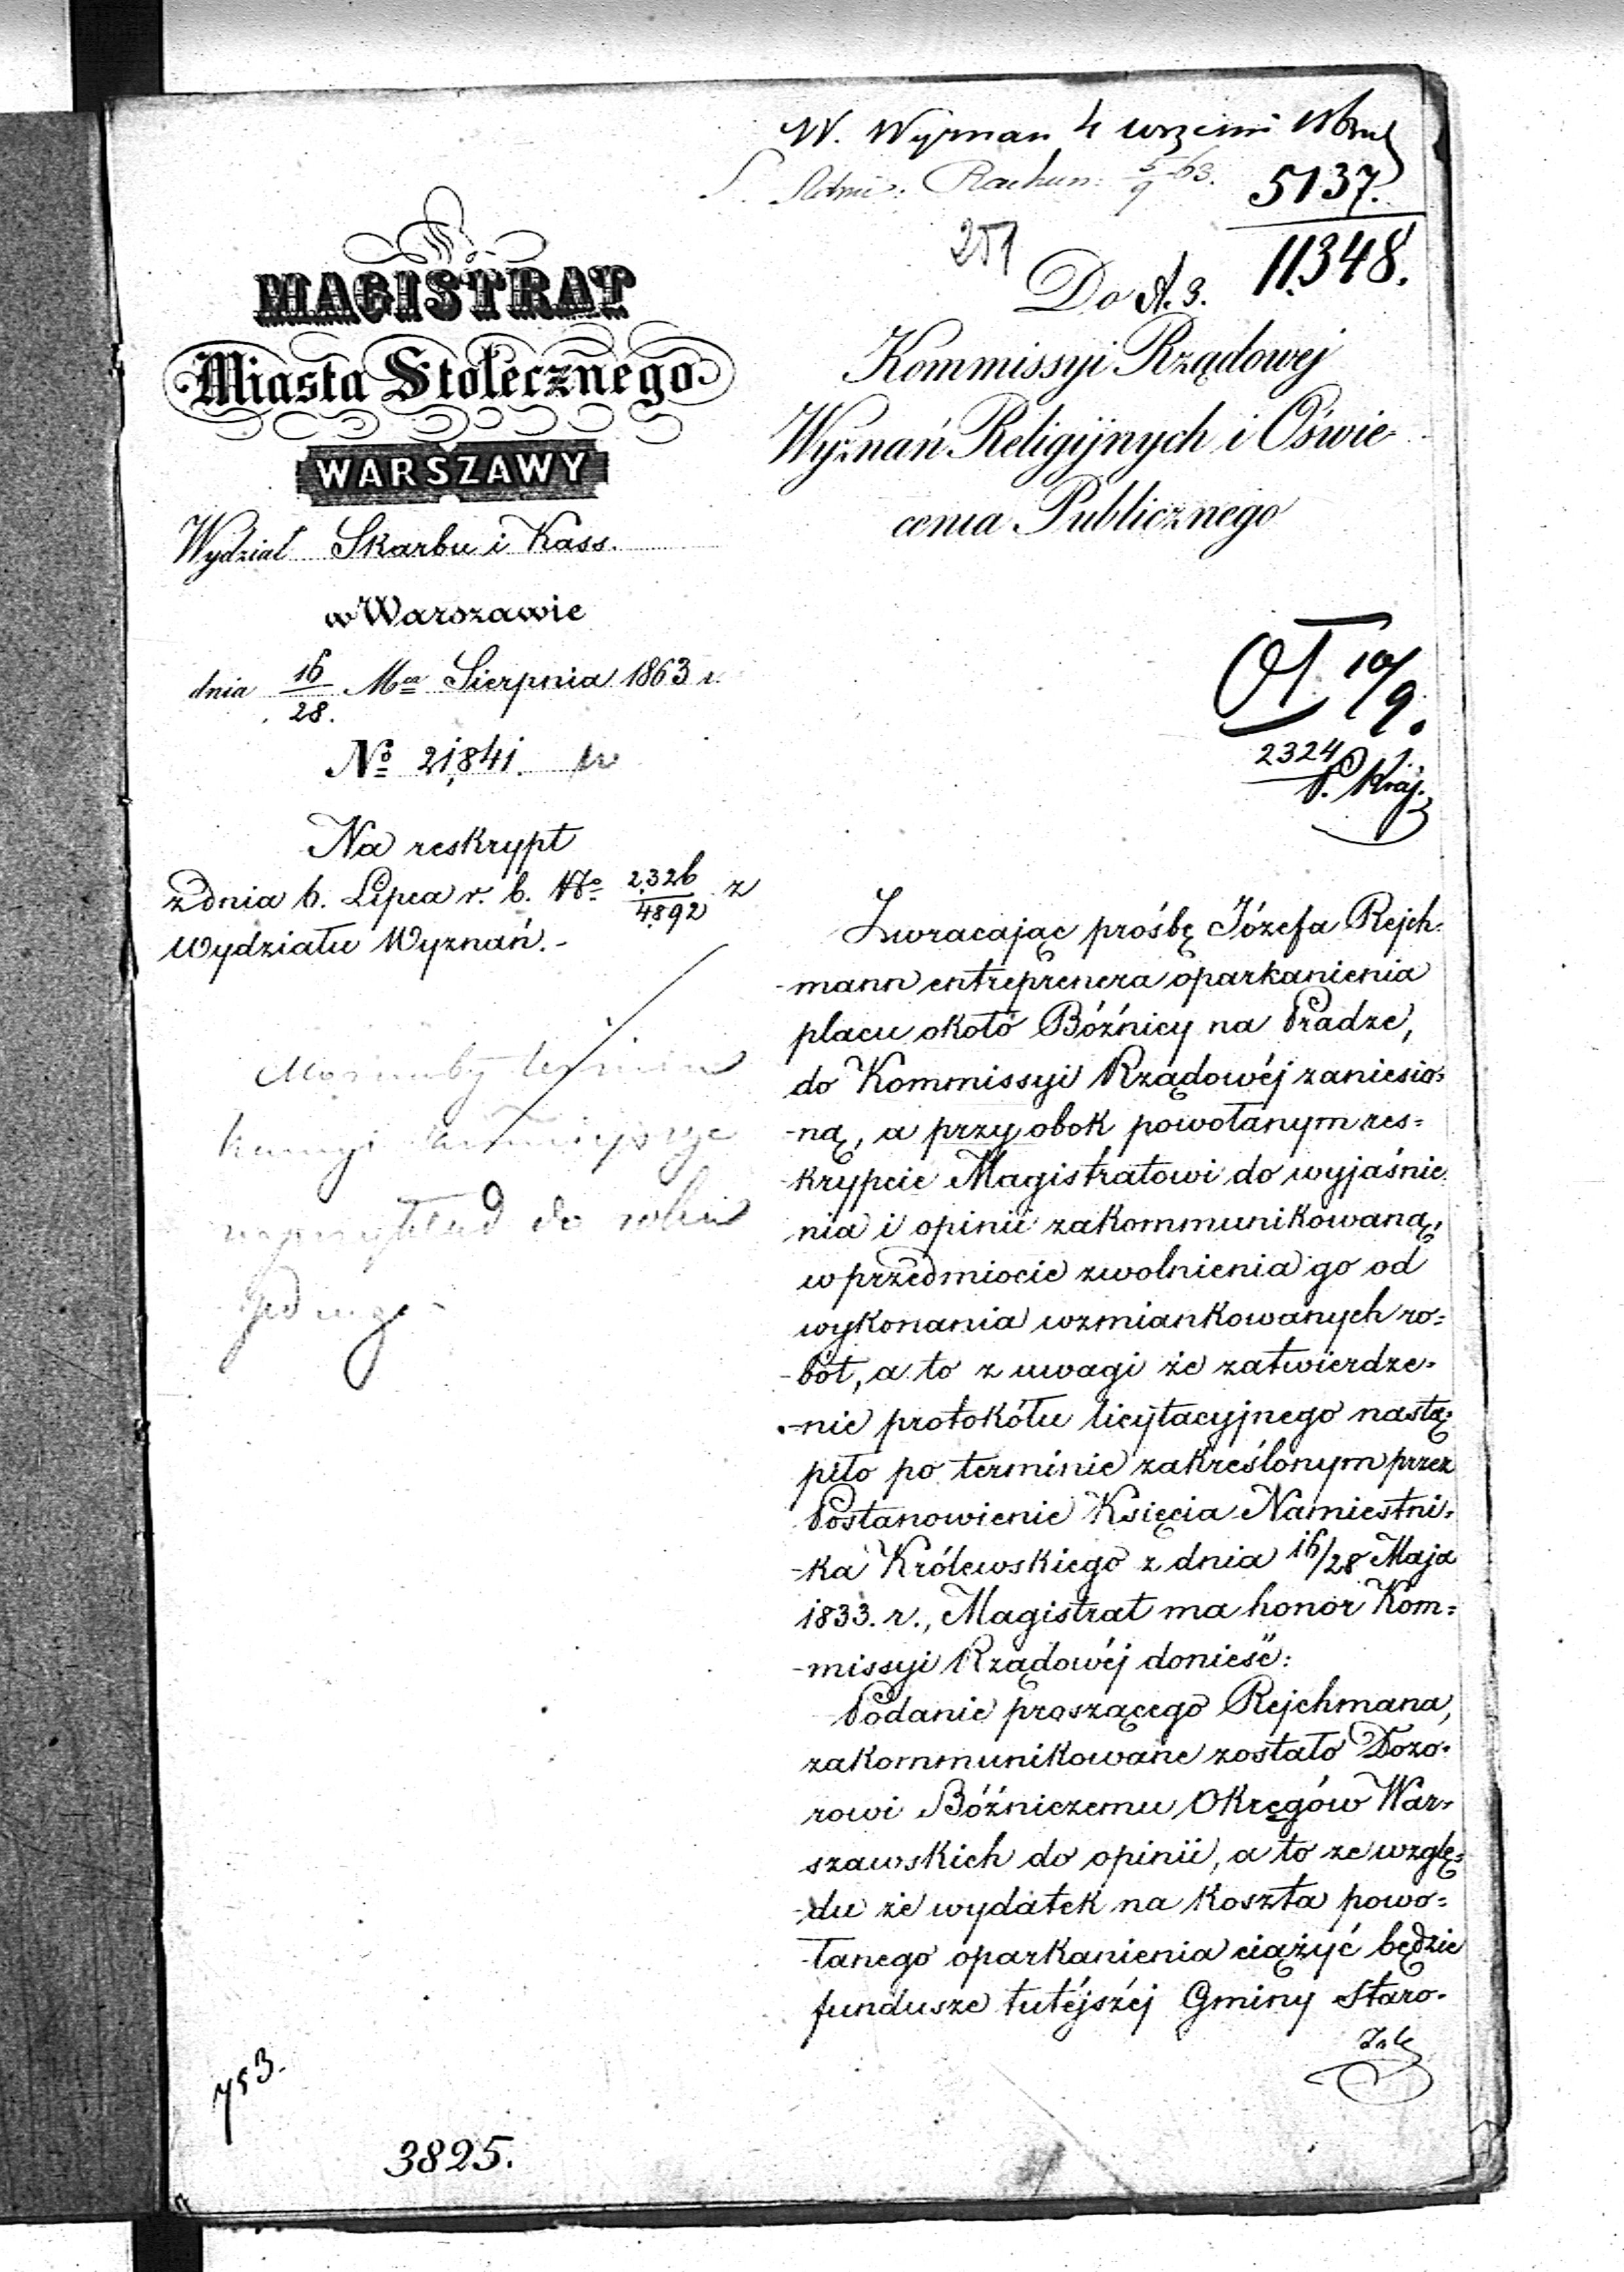 W. Wyznań 4 wrześni
Rachun: 5/9 63.
5137.
11348.
251
Do A. 3.
Kommissyi Rządowej
Wyznań Religijnych i Oświe-
cenia Publicznego
MAGISTRAT
Miasta Stołecznego
WARSZAWY
Wydział Skarbu i Kass.
w Warszawie
dnia 16/28. Mca Sierpnia 1863 r.
No 21,841.
Na reskrypt
z dnia 6. Lipca r. b. No 2326/4892 z
Wydziału Wyznań.-
10/9.
2324
P. Kraj.
Zwracając prośbę Józefa Rejch-
-mann entreprenera oparkanienia
placu około Bóźnicy na Pradze,
do Kommissyi Rządowéj zaniesio=
-ną, a przy obok powołanym res=
-krypcie Magistratowi do wyjaśnie
nia i opinii zakommunikowaną,
w przedmiocie zwolnienia go od
wykonania wzmiankowanych ro=
-bót, a to z uwagi że zatwierdze-
-nie protokółu licytacyjnego nastą-
piło po terminie zakreślonym przez
Postanowienie Księcia Namiestni-
-ka Królewskiego z dnia 16/28 Maja
1833. r., Magistrat ma honor Kom=
-missyi Rządowéj donieść:
Podanie proszącego Rejchmana,
zakommunikowane zostało Dozo-
rowi Bóźniczemu Okręgów War-
szawskich do opinii, a to ze wzglę=
-du że wydatek na koszta powo=
-łanego oparkanienia ciążyć będzie
fundusze tutéjszéj Gminy Staro-
753.
3825.